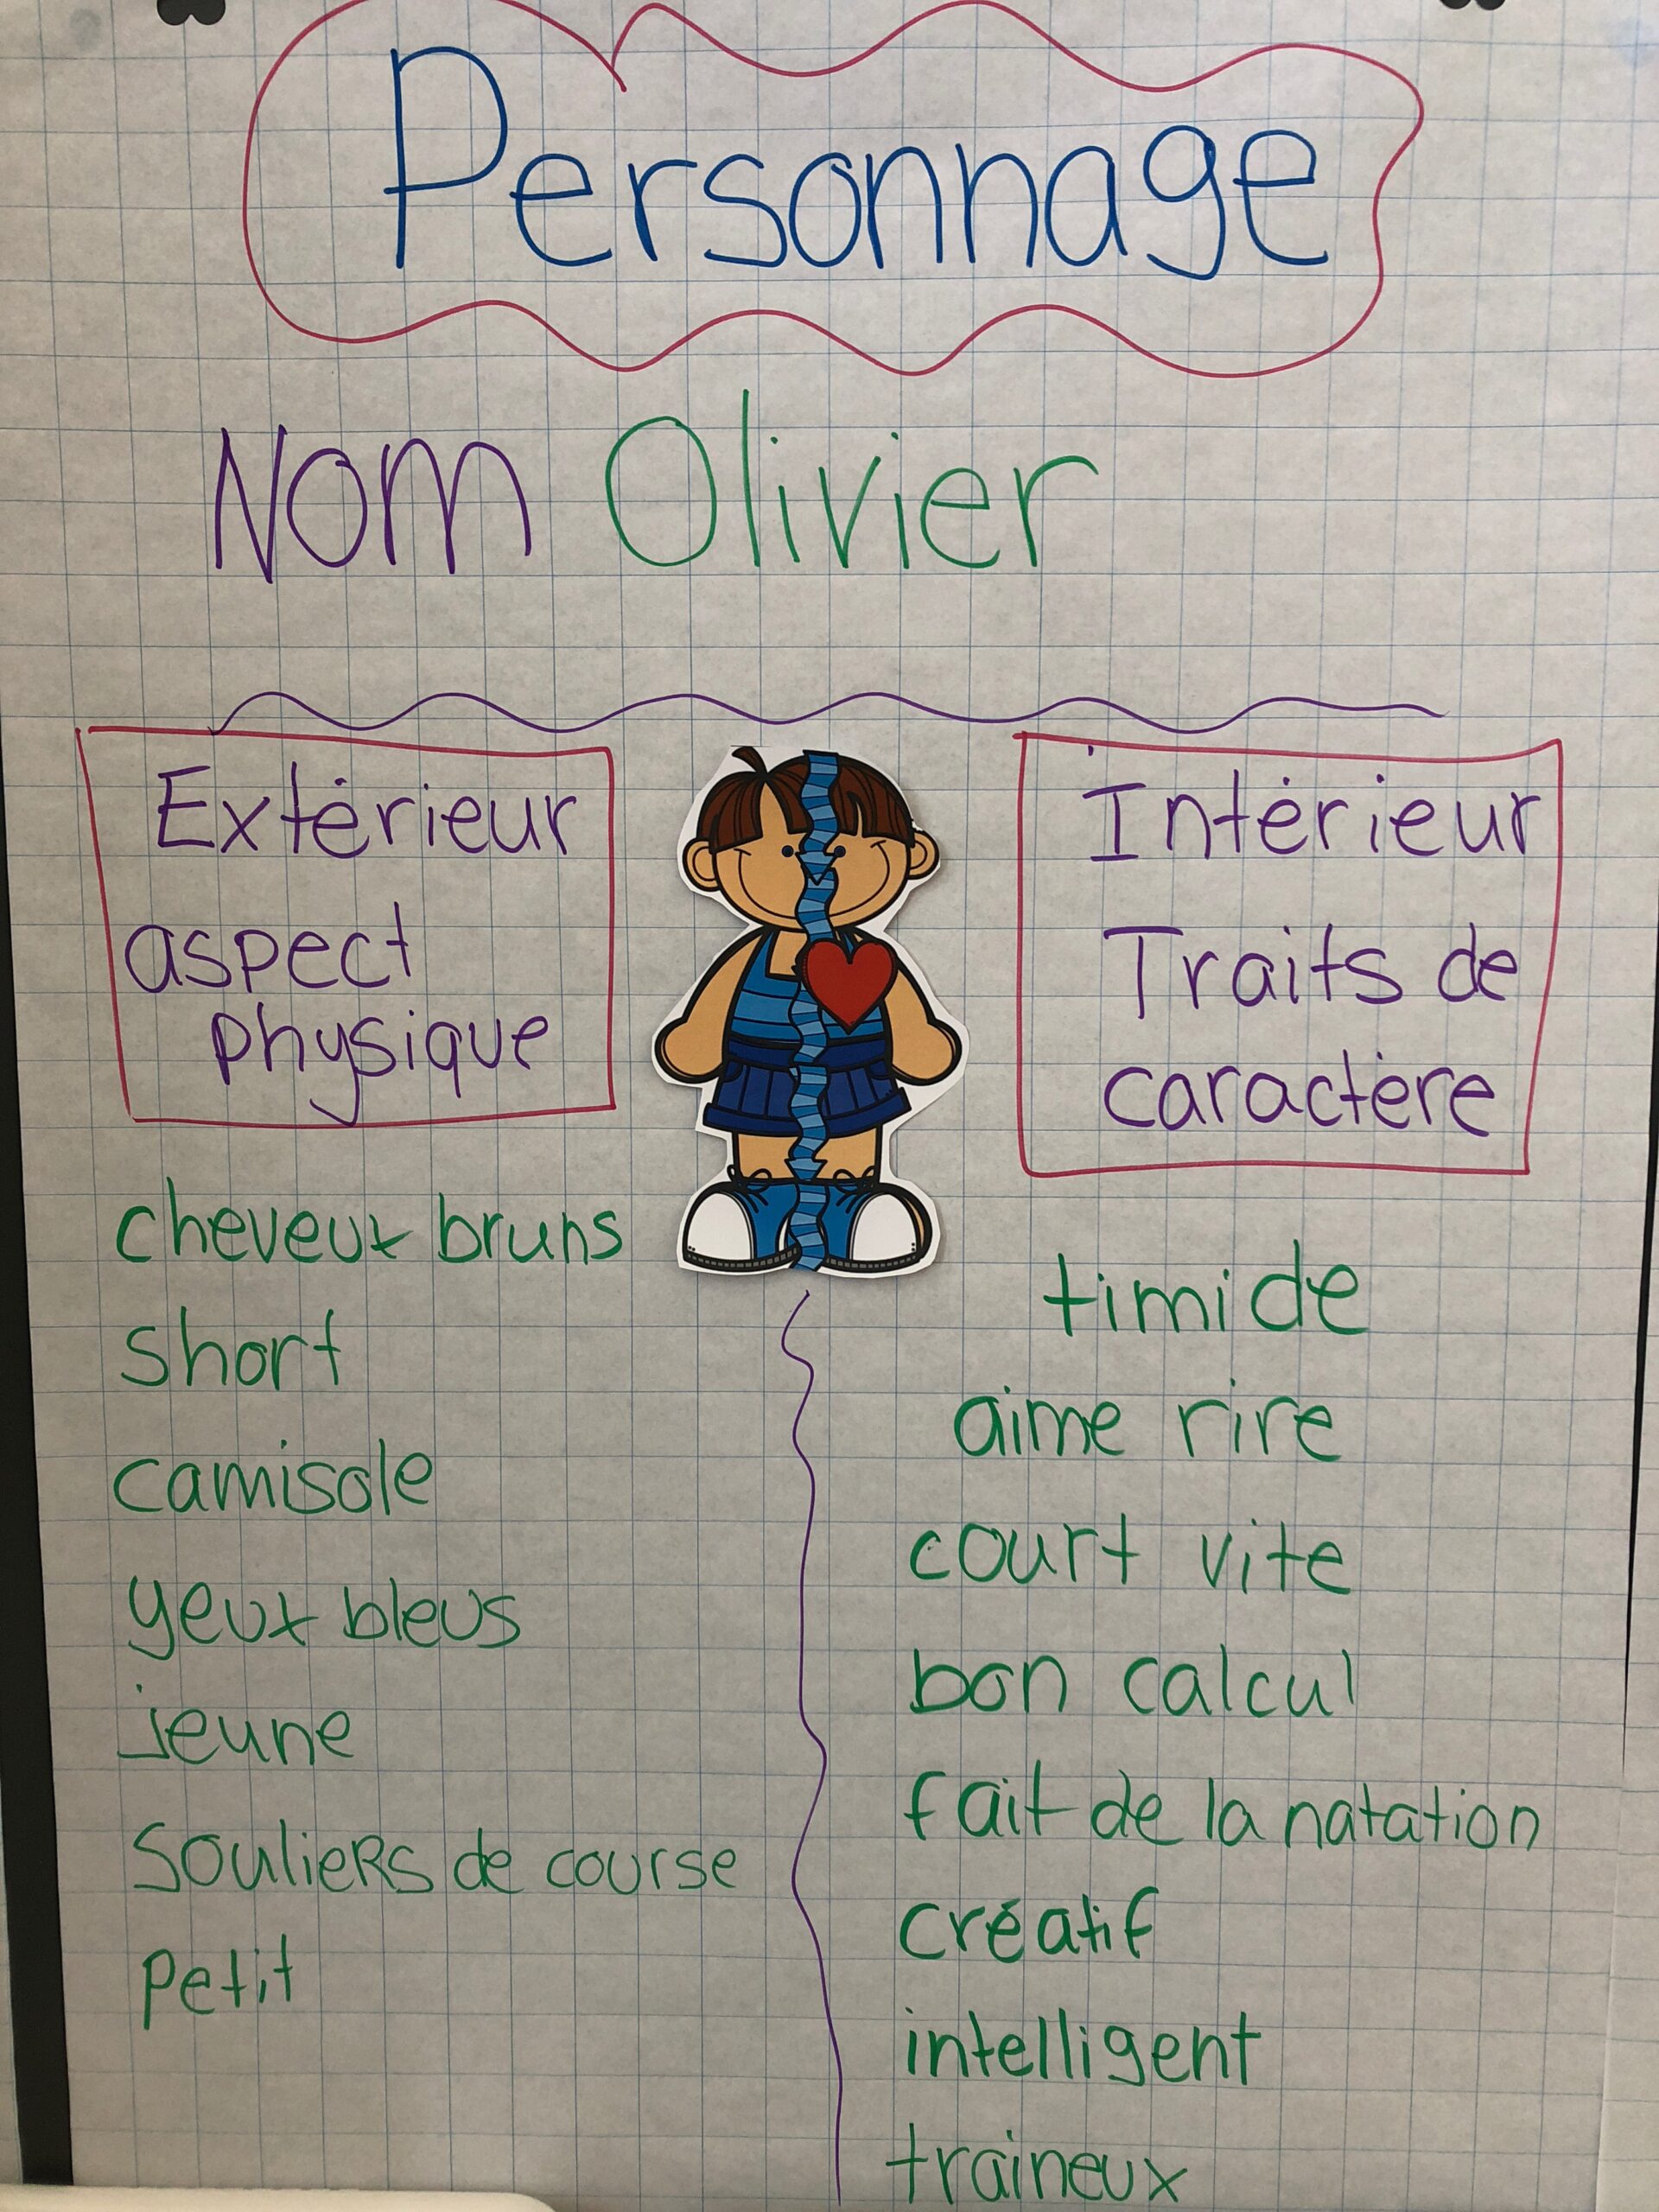 Personnage
Nom Olivier
Extérieur
aspect
physique
cheveux bruns
short
camisole
yeux bleus
jeune
souliers de course
petit
Intérieur
Traits de
caractère
timide
aime rire
court vite
bon calcul
fait de la natation
créatif
intelligent
traineux